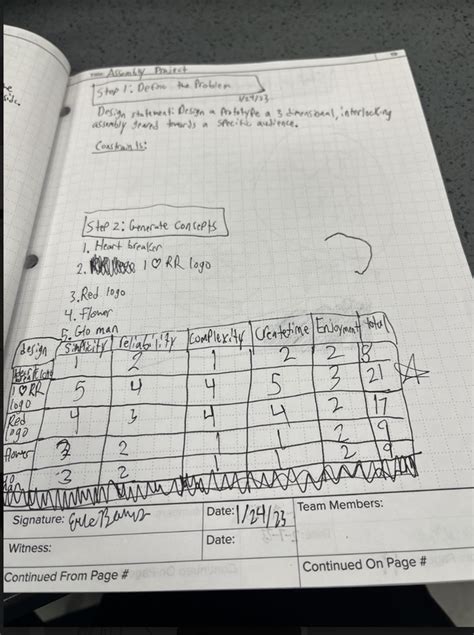 Assembly Project
Step 1: Define the Problem
1/24/23
Design statement: Design a Prototype a 3 dimensional, interlocking
assembly geared towards a specific audience.
Constraints:
Step 2: Generate Concepts
1. Heart breaker
2. I ♡ RR logo
3. Red logo
4. Flower
5. Glo man
design Simplicity reliability Complexity Create time Enjoyment total
1 2 1 2 2 8
I ♡ RR logo 5 4 4 5 3 21
Red logo 4 3 4 4 2 17
flower 3 2 1 1 2 9
man 3 2 1 1 2 9
Signature:
Date: 1/24/23
Team Members:
Witness:
Date:
Continued From Page #
Continued On Page #